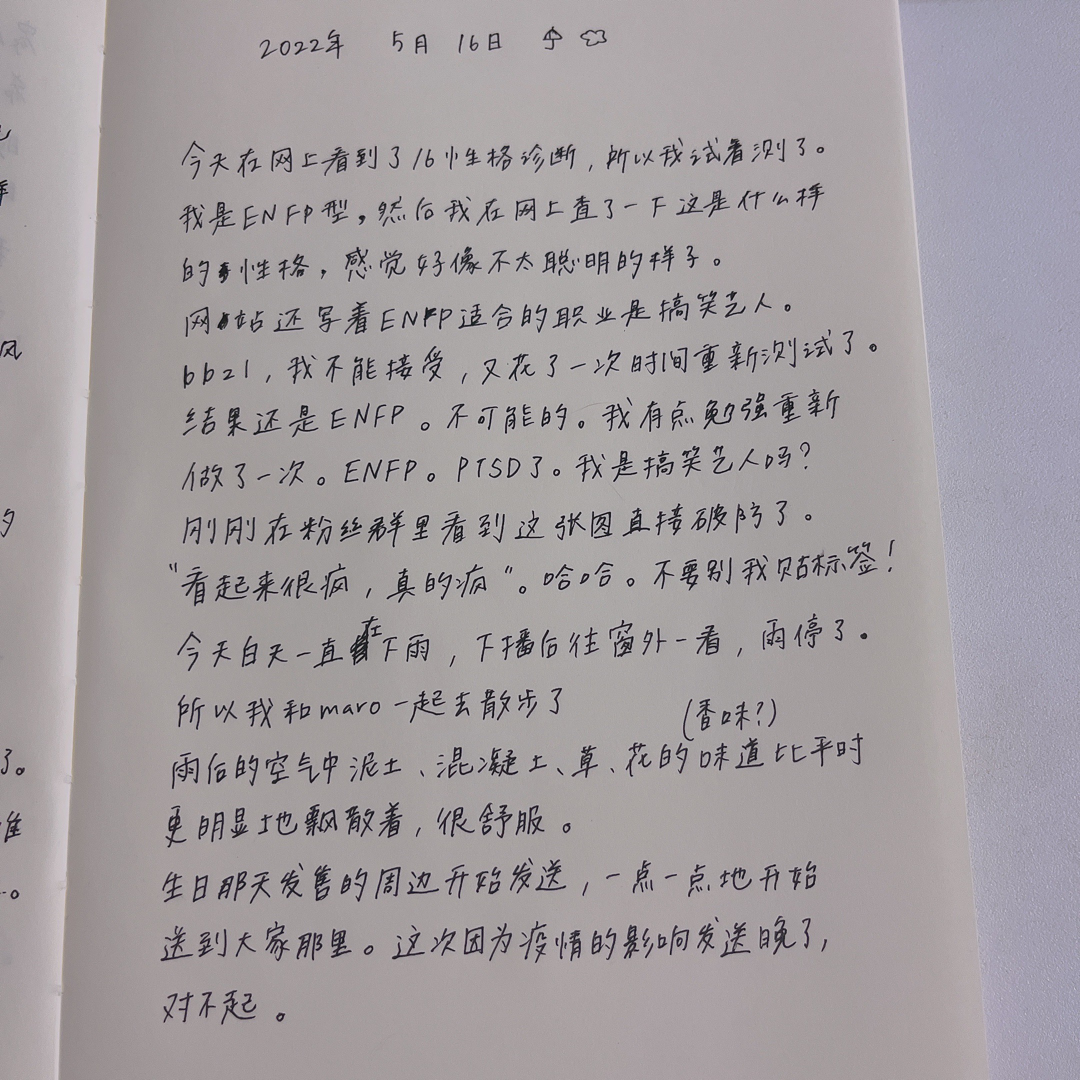 2022年 5月 16日
今天在网上看到了16性格诊断，所以我试着测了。
我是ENFP型。然后我在网上查了一下这是什么样
的性格，感觉好像不太聪明的样子。
网站还写着ENFP适合的职业是搞笑艺人。
bbzl，我不能接受，又花了一次时间重新测试了。
结果还是ENFP。不可能的。我有点勉强重新
做了一次。ENFP。PTSD了。我是搞笑艺人吗？
刚刚在粉丝群里看到这张图直接破防了。
“看起来很疯，真的疯”。哈哈。不要别我贴标签！
今天白天一直在下雨，下播后往窗外一看，雨停了。
所以我和maro一起去散步了
(香味?)
雨后的空气中泥土、混凝土、草、花的味道比平时
更明显地飘散着，很舒服。
生日那天发售的周边开始发送，一点一点地开始
送到大家那里。这次因为疫情的影响发送晚了，
对不起。
风
了。